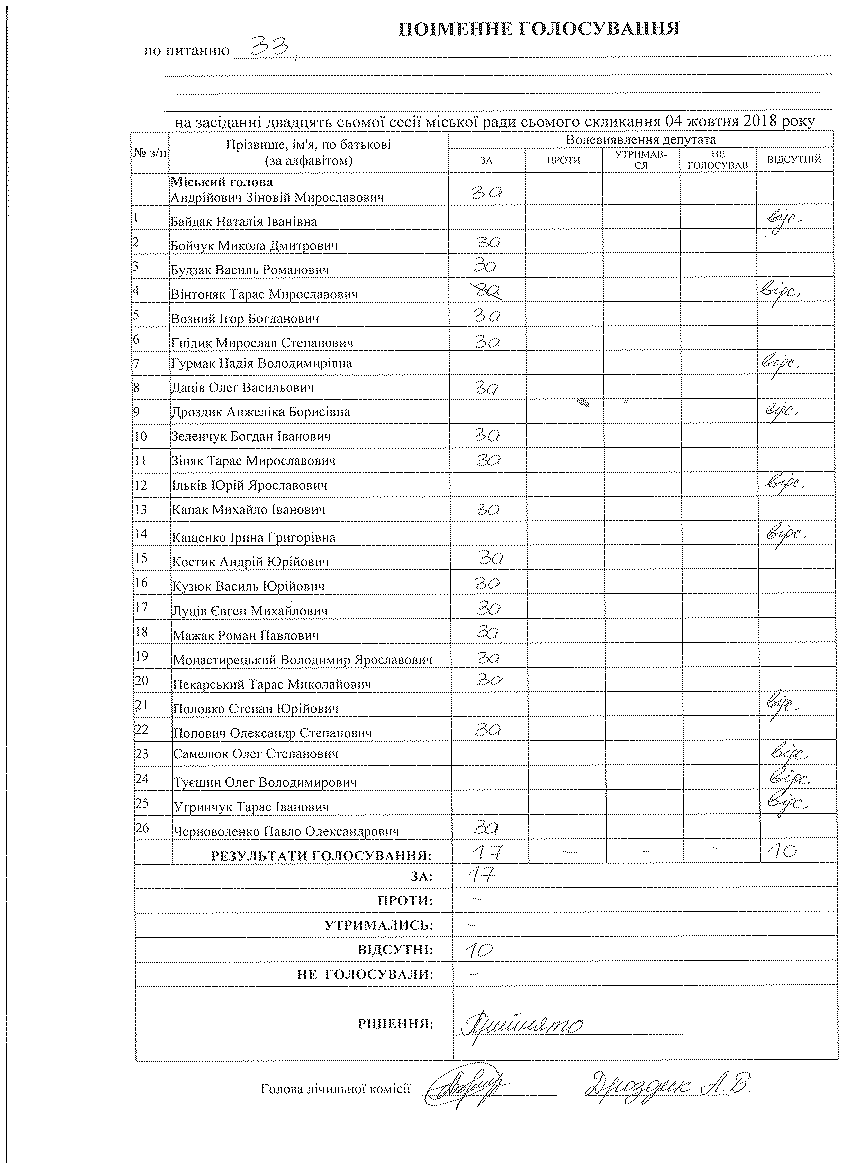 ПОІМЕННЕ ГОЛОСУВАННЯ
по питанню 33
на засіданні двадцять сьомої сесії міської ради сьомого скликання 04 жовтня 2018 року
№ з/п Прізвище, ім'я, по батькові (за алфавітом) Волевиявлення депутата
ЗА ПРОТИ УТРИМАВ-СЯ НЕ ГОЛОСУВАВ ВІДСУТНІЙ
Міський голова
Андрійович Зіновій Мирославович за
1 Байдак Наталія Іванівна відс.
2 Бойчук Микола Дмитрович за
3 Будзак Василь Романович за
4 Вінтоняк Тарас Мирославович за відс.
5 Возний Ігор Богданович за
6 Гнідик Мирослав Степанович за
7 Гурмак Надія Володимирівна відс.
8 Даців Олег Васильович за
9 Дроздик Анжеліка Борисівна відс.
10 Зеленчук Богдан Іванович за
11 Зіняк Тарас Мирославович за
12 Ільків Юрій Ярославович відс.
13 Капак Михайло Іванович за
14 Кащенко Ірина Григорівна відс.
15 Костик Андрій Юрійович за
16 Кузюк Василь Юрійович за
17 Луців Євген Михайлович за
18 Мажак Роман Павлович за
19 Монастирецький Володимир Ярославович за
20 Пекарський Тарас Миколайович за
21 Половко Степан Юрійович відс.
22 Попович Олександр Степанович за
23 Самелюк Олег Степанович відс.
24 Туєшин Олег Володимирович відс.
25 Угринчук Тарас Іванович відс.
26 Черноволенко Павло Олександрович за
РЕЗУЛЬТАТИ ГОЛОСУВАННЯ: 17 – – – 10
ЗА: 17
ПРОТИ: –
УТРИМАЛИСЬ: –
ВІДСУТНІ: 10
НЕ ГОЛОСУВАЛИ: –
РІШЕННЯ: Прийнято
Голова лічильної комісії Дроздик А.Б.